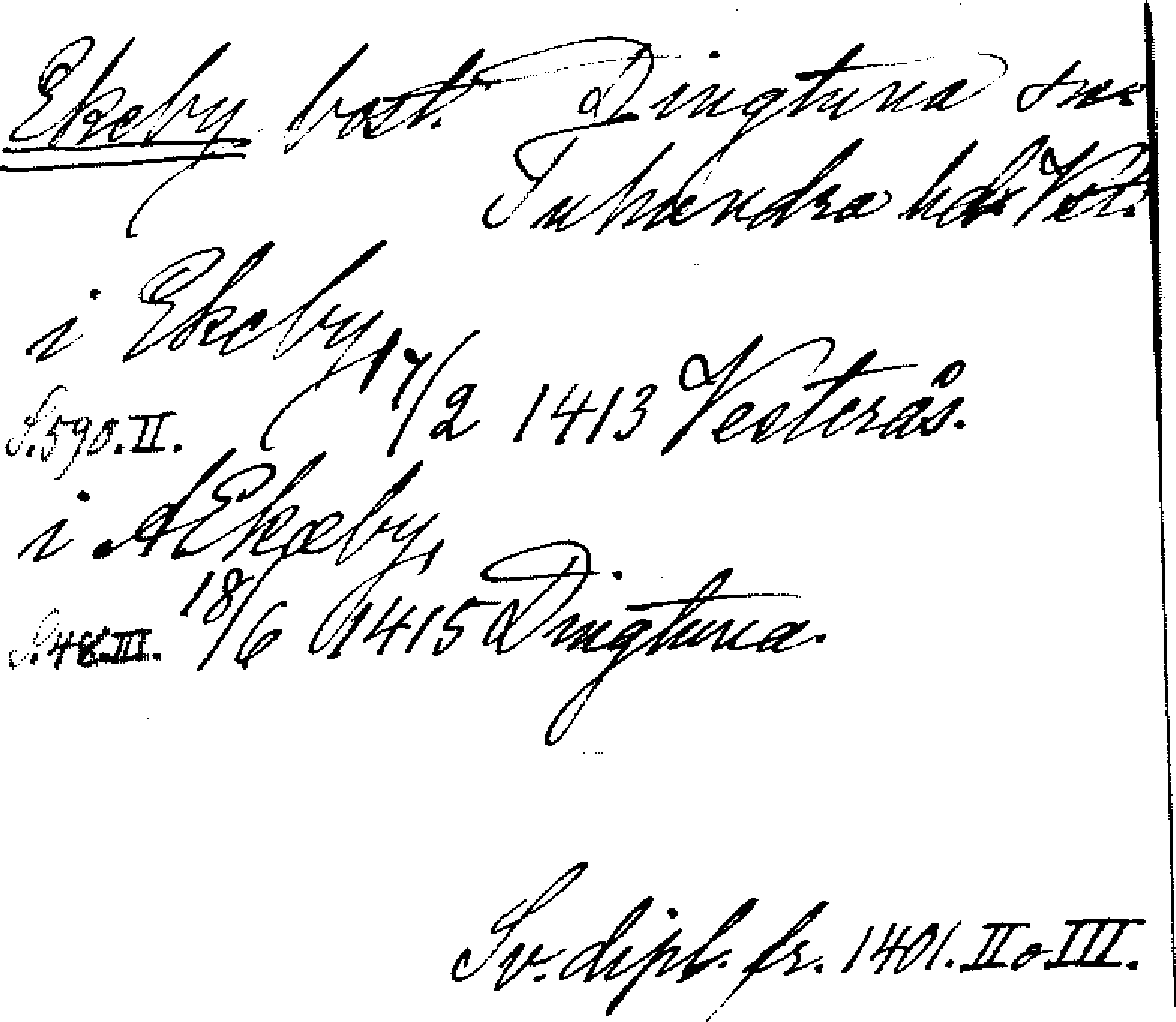 Ekeby bost. Dingtuna sn.
Tuhundra hd. Vstm.
i Ekeby,
S.590.II. 17/2 1413 Vesterås.
i Ækæby,
S.48.III. 18/6 1415 Dingtuna.
Sv. dipl. fr. 1401. II o III.